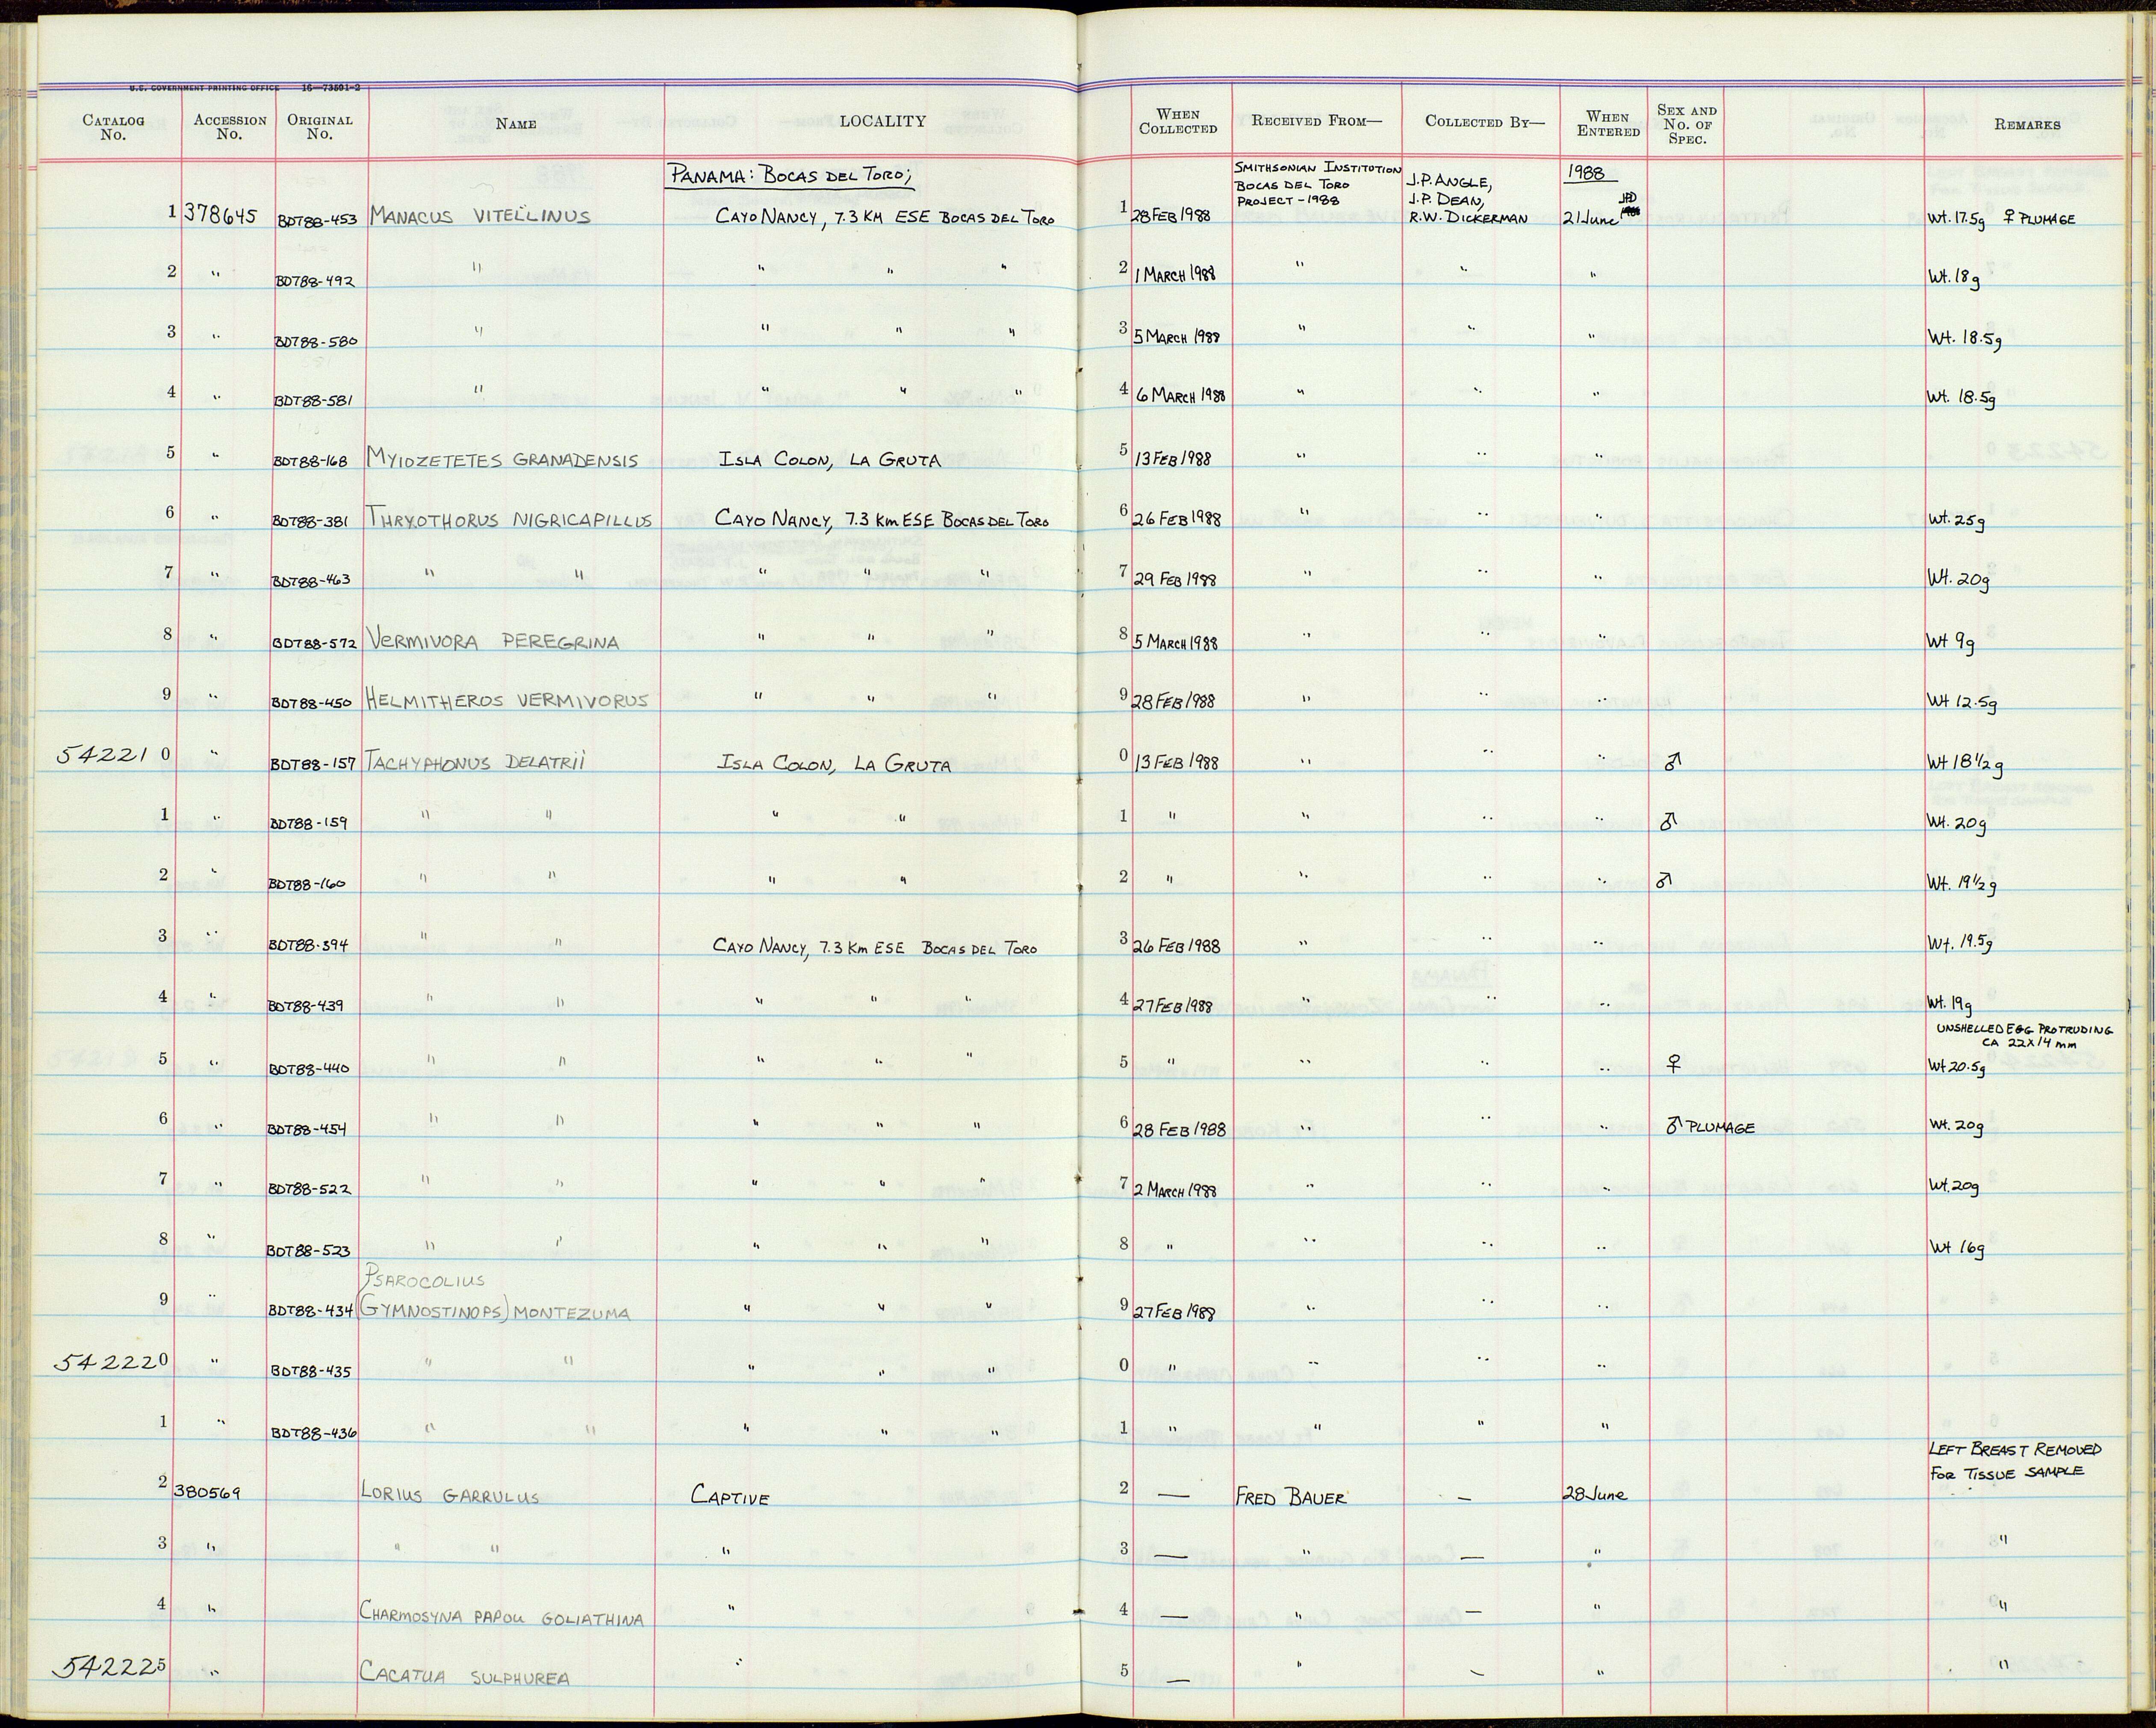 U.S. GOVERNMENT PRINTING OFFICE 16—73591-2
CATALOG No. ACCESSION No. ORIGINAL No. NAME LOCALITY WHEN COLLECTED RECEIVED FROM— COLLECTED BY— WHEN ENTERED SEX AND No. OF SPEC. REMARKS
PANAMA: BOCAS DEL TORO; SMITHSONIAN INSTITUTION BOCAS DEL TORO PROJECT - 1988 J.P. ANGLE, J.P. DEAN, 1988
1 378645 BDT88-453 MANACUS VITELLINUS CAYO NANCY, 7.3 KM ESE BOCAS DEL TORO 1 28 FEB 1988 R.W. DICKERMAN 21 June JPD Wt. 17.5g ♀ PLUMAGE
2 " BDT88-492 " " " " 2 1 MARCH 1988 " " " Wt. 18g
3 " BDT88-580 " " " " 3 5 MARCH 1988 " " " Wt. 18.5g
4 " BDT88-581 " " " " 4 6 MARCH 1988 " " " Wt. 18.5g
5 " BDT88-168 MYIOZETETES GRANADENSIS ISLA COLON, LA GRUTA 5 13 FEB 1988 " " "
6 " BDT88-381 THRYOTHORUS NIGRICAPILLUS CAYO NANCY, 7.3 Km ESE BOCAS DEL TORO 6 26 FEB 1988 " " " Wt. 25g
7 " BDT88-463 " " " " " 7 29 FEB 1988 " " " Wt. 20g
8 " BDT88-572 VERMIVORA PEREGRINA " " " 8 5 MARCH 1988 " " " Wt 9g
9 " BDT88-450 HELMITHEROS VERMIVORUS " " " 9 28 FEB 1988 " " " Wt 12.5g
542210 " BDT88-157 TACHYPHONUS DELATRII ISLA COLON, LA GRUTA 0 13 FEB 1988 " " " ♂ Wt 18 1/2 g
1 " BDT88-159 " " " " 1 " " " " ♂ Wt. 20g
2 " BDT88-160 " " " " 2 " " " " ♂ Wt. 19 1/2 g
3 " BDT88-394 " " CAYO NANCY, 7.3 Km ESE BOCAS DEL TORO 3 26 FEB 1988 " " " Wt. 19.5g
4 " BDT88-439 " " " " " 4 27 FEB 1988 " " " Wt. 19g
UNSHELLED EGG PROTRUDING
CA 22X14 mm
5 " BDT88-440 " " " " " 5 " " " " ♀ Wt 20.5g
6 " BDT88-454 " " " " " 6 28 FEB 1988 " " " ♂ PLUMAGE Wt. 20g
7 " BDT88-522 " " " " " 7 2 MARCH 1988 " " " Wt. 20g
8 " BDT88-523 " " " " " 8 " " " " Wt 16g
PSAROCOLIUS
9 " BDT88-434 (GYMNOSTINOPS) MONTEZUMA " " " 9 27 FEB 1988 " " "
542220 " BDT88-435 " " " " " 0 " " " "
1 " BDT88-436 " " " " " 1 " " " "
LEFT BREAST REMOVED
FOR TISSUE SAMPLE
2 380569 LORIUS GARRULUS CAPTIVE 2 — FRED BAUER — 28 June
3 " " " " 3 — " — " "
4 " CHARMOSYNA PAPOU GOLIATHINA " 4 — " — " "
542225 " CACATUA SULPHUREA " 5 — " — " "